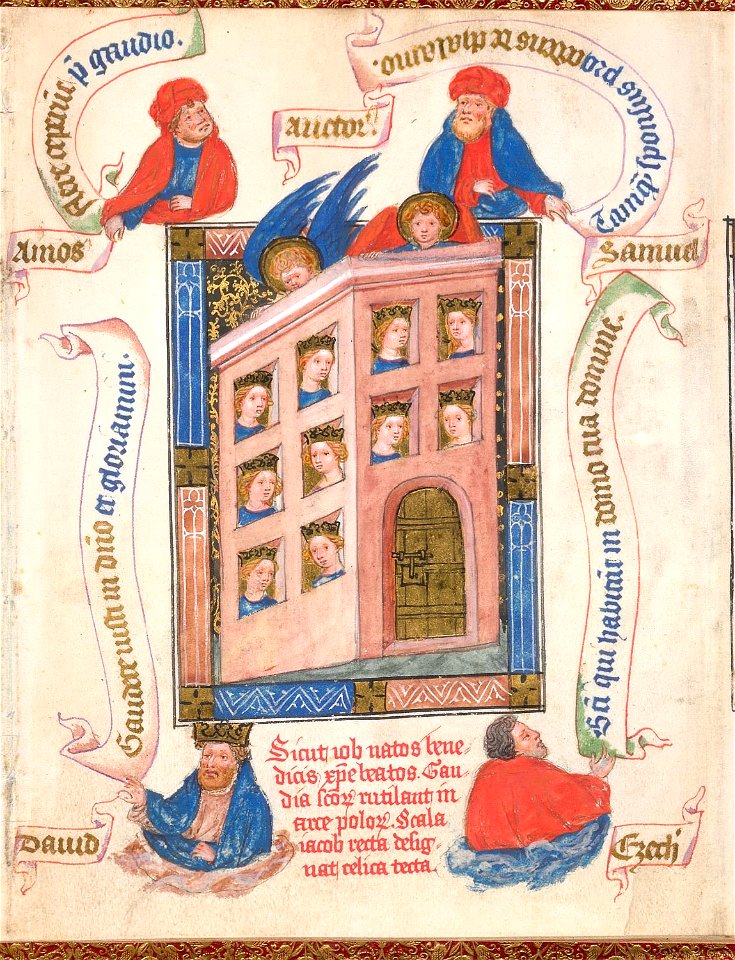 p̄ gaudio.
Auctor
Tamq̄ sponsus procedens de thalamo.
Amos
Samuel
Gaudete iusti in dn̄o et gloriamini.
Bt̄i qui habitāt in domo tua domine.
Sicut iob natos bene-
dicis xp̄e beatos. Gau-
dia scōꝝ rutilant in
arce poloꝝ. Scala
iacob recta desig-
nat celica tecta.
Dauid
Ezechi